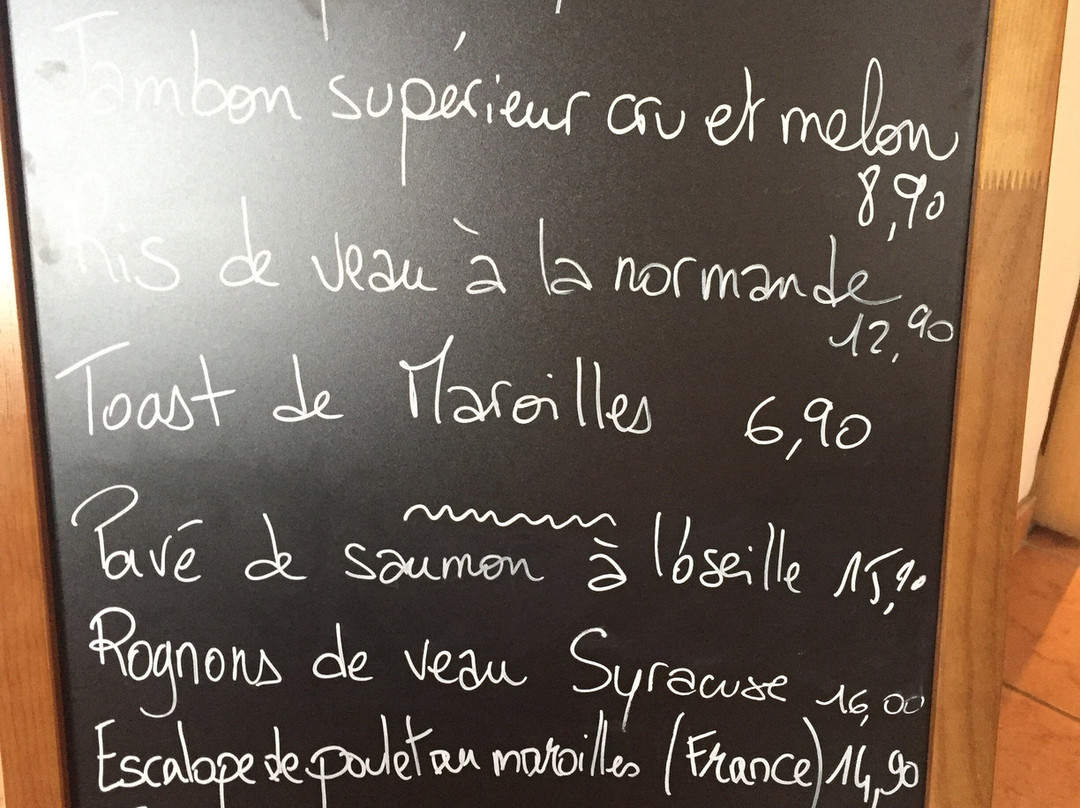 Jambon supérieur cru et melon
8,90
Ris de veau à la normande
12,90
Toast de Maroilles 6,90
Pavé de saumon à l'oseille 15,90
Rognons de veau Syracuse 16,00
Escalope de poulet au maroilles (France) 14,90